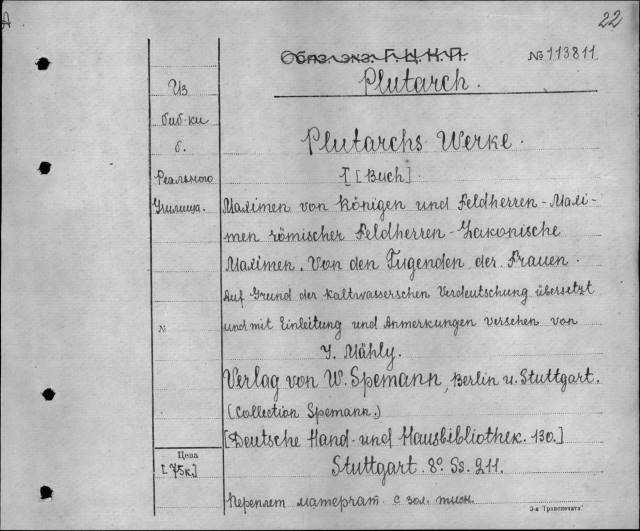 А
22
Обяз. экз. Г.Ц.К.П.
№ 113811
Plutarch.
Из
биб-ки
б.
Реального
Училища.
Plutarchs Werke.
I [Buch].
Maximen von Königen und Feldherren - Maxi-
men römischer Feldherren - Lakonische
Maximen. Von den Tugenden der Frauen.
Auf Grund der Kaltwasserschen Verdeutschung übersetzt
und mit Einleitung und Anmerkungen versehen von
№
J. Mähly.
Verlag von W. Spemann, Berlin u. Stuttgart.
(Collection Spemann.)
[Deutsche Hand- und Hausbibliothek. 130.]
Цена
[75к.]
Stuttgart. 8º. Ss. 211.
Переплет матерчат. с зол. тисн.
З-я "Транспечати"